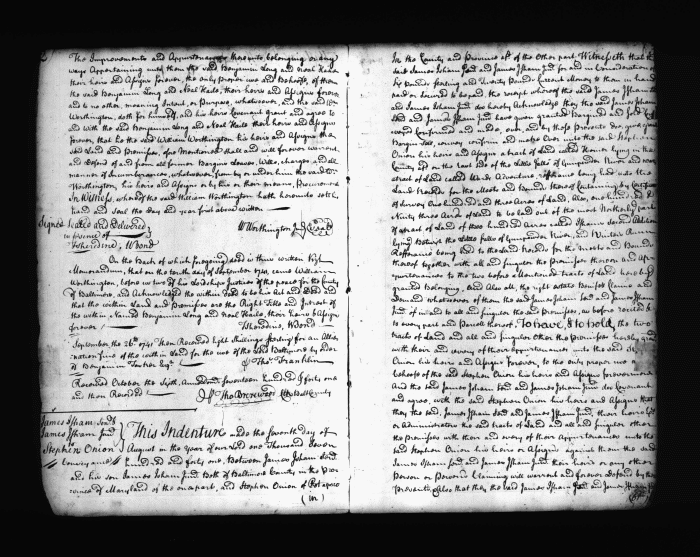 The Improvements and Appurtenances thereunto belonging or any
ways Appertaining unto them the said Benjamin Long and Neal Haile
their heirs and Assigns forever, the only proper use and Behoofe, of them
the said Benjamin Long and Neal Haile, their heirs and Assigns forever
and to no other, meaning Intent, or Purpose, whatsoever, and the said Wm
Worthington, doth for himself, and his heirs Covenant grant and agree to
and with the said Benjamin Long and Neal Haile their heirs and Assigns
forever, that he the said William Worthington his heirs and Assigns the
said Land and Premises, afore Mentioned shall and will forever warrant
and Defend of and from all former Bargains Leases, Wills, charges, and all
manner of Incumbrances, whatsoever, from by or under him the said Wm
Worthington, his heirs and Assigns or by his or their means, Procurement
In Witness, whereof the said William Worthington hath hereunto sett his
hand and Seal the day and year first above written
Signed Sealed and Delivered
in presence of
W Worthington Seal
T Sheredine, W Bond
On the Back of which foregoing deed is thus written Vizt
Memorandum, that on the tenth day of September 1741 came William
Worthington, before us two of his Lordships Justices of the peace for the County
of Baltimore, and Acknowledged the within Deed to be his Act and Deed and
that the within Land and Premises are the Right Title and Interest of
the within Named Benjamin Long and Neal Haile, their heirs & Assigns
forever
T Sheredine, W Bond
September the 26th 1741 Then Received Eight Shillings Sterling for an Alien
nation fine of the within Land for the use of the Lord Baltimore by order
of Benjamin Tasker Esqr
Thos Franklin
Recorded October the Sixth, Anno Domini Seventeen hundred & forty one
and then Recorded
Tho Brerewood Clk Balt County
James Isham Senr &
James Isham Junr
to
Stephen Onion
Conveyance
This Indenture made the seventh day of
August in the year of our Lord one Thousand Seven
hundred and forty one, Between James Isham Senr
and his son James Isham Junr Both of Baltimore County in the Pro
vince of Maryland of the one part, and Stephen Onion of Potapsco
(in)
In the County and Province afd. of the Other part. Witnesseth that the
said James Isham Senr and James Isham Junr for and in Consideration of
hundred and Twenty Pounds Current Money to them in hand
paid or Secured to be paid, the receipt whereof the said James Isham
and James Isham Junr do hereby Acknowledge they the said James Isham
Senr and James Isham Junr have given granted Bargained and Sold
and Confirmed and made, over, and by these presents do give grant
Bargain Sell, convey confirm and make Over unto the said Stephen
Onion his heirs and Assigns a tract of Land called lying in the
County afd on the East side of the Little falls of Gunpowder River and
a tract of Land called Wards Adventure, reference being had unto the
Land Records for the Metes and Bounds thereof Containing by Certificate
of Survey one hundred and three Acres of Land, Also, one hundred and
Ninety three Acres of Land to be laid out of the most Northerly part
of a tract of Land of three hundred Acres called Ishams Addition
lying between the Little falls of Gunpowder River and Winters Run
Reference being had to the Land Records for the Metes and Bounds
thereof together with all and singular the Premises thereon and App
urtenances to the two before Mentioned tracts of Land hereby
granted Belonging, And Also all, the right estate Benefit Claim and
Demand whatsoever of them the said James Isham Senr and James Isham
Junr of in and to all and singular the said Premises, as before recited
to every part and Parcell thereof. To have, & to hold, the two
tracts of Land and all and singular other the Premises hereby granted
with their and every of their Appurtenances unto the said Stephen
Onion his heirs and Assigns forever, to the only proper use and
behoofe of the said Stephen Onion his heirs and Assigns forevermore
And the said James Isham Senr and James Isham Junr do Covenant
and agree, with the said Stephen Onion his heirs and Assigns that
they the said, James Isham Senr and James Isham Junr, their heirs Exrs
or Administrators the said tracts of Land and all and singular other
the Premises with their and every of their Appurtenances unto the
said Stephen Onion his heirs or Assigns against them the said
James Isham Senr and James Isham Junr their heirs or any other
Person or Persons Claiming will warrant and forever defend by these
Presents. Also that they the said James Isham Senr and James Isham Junr